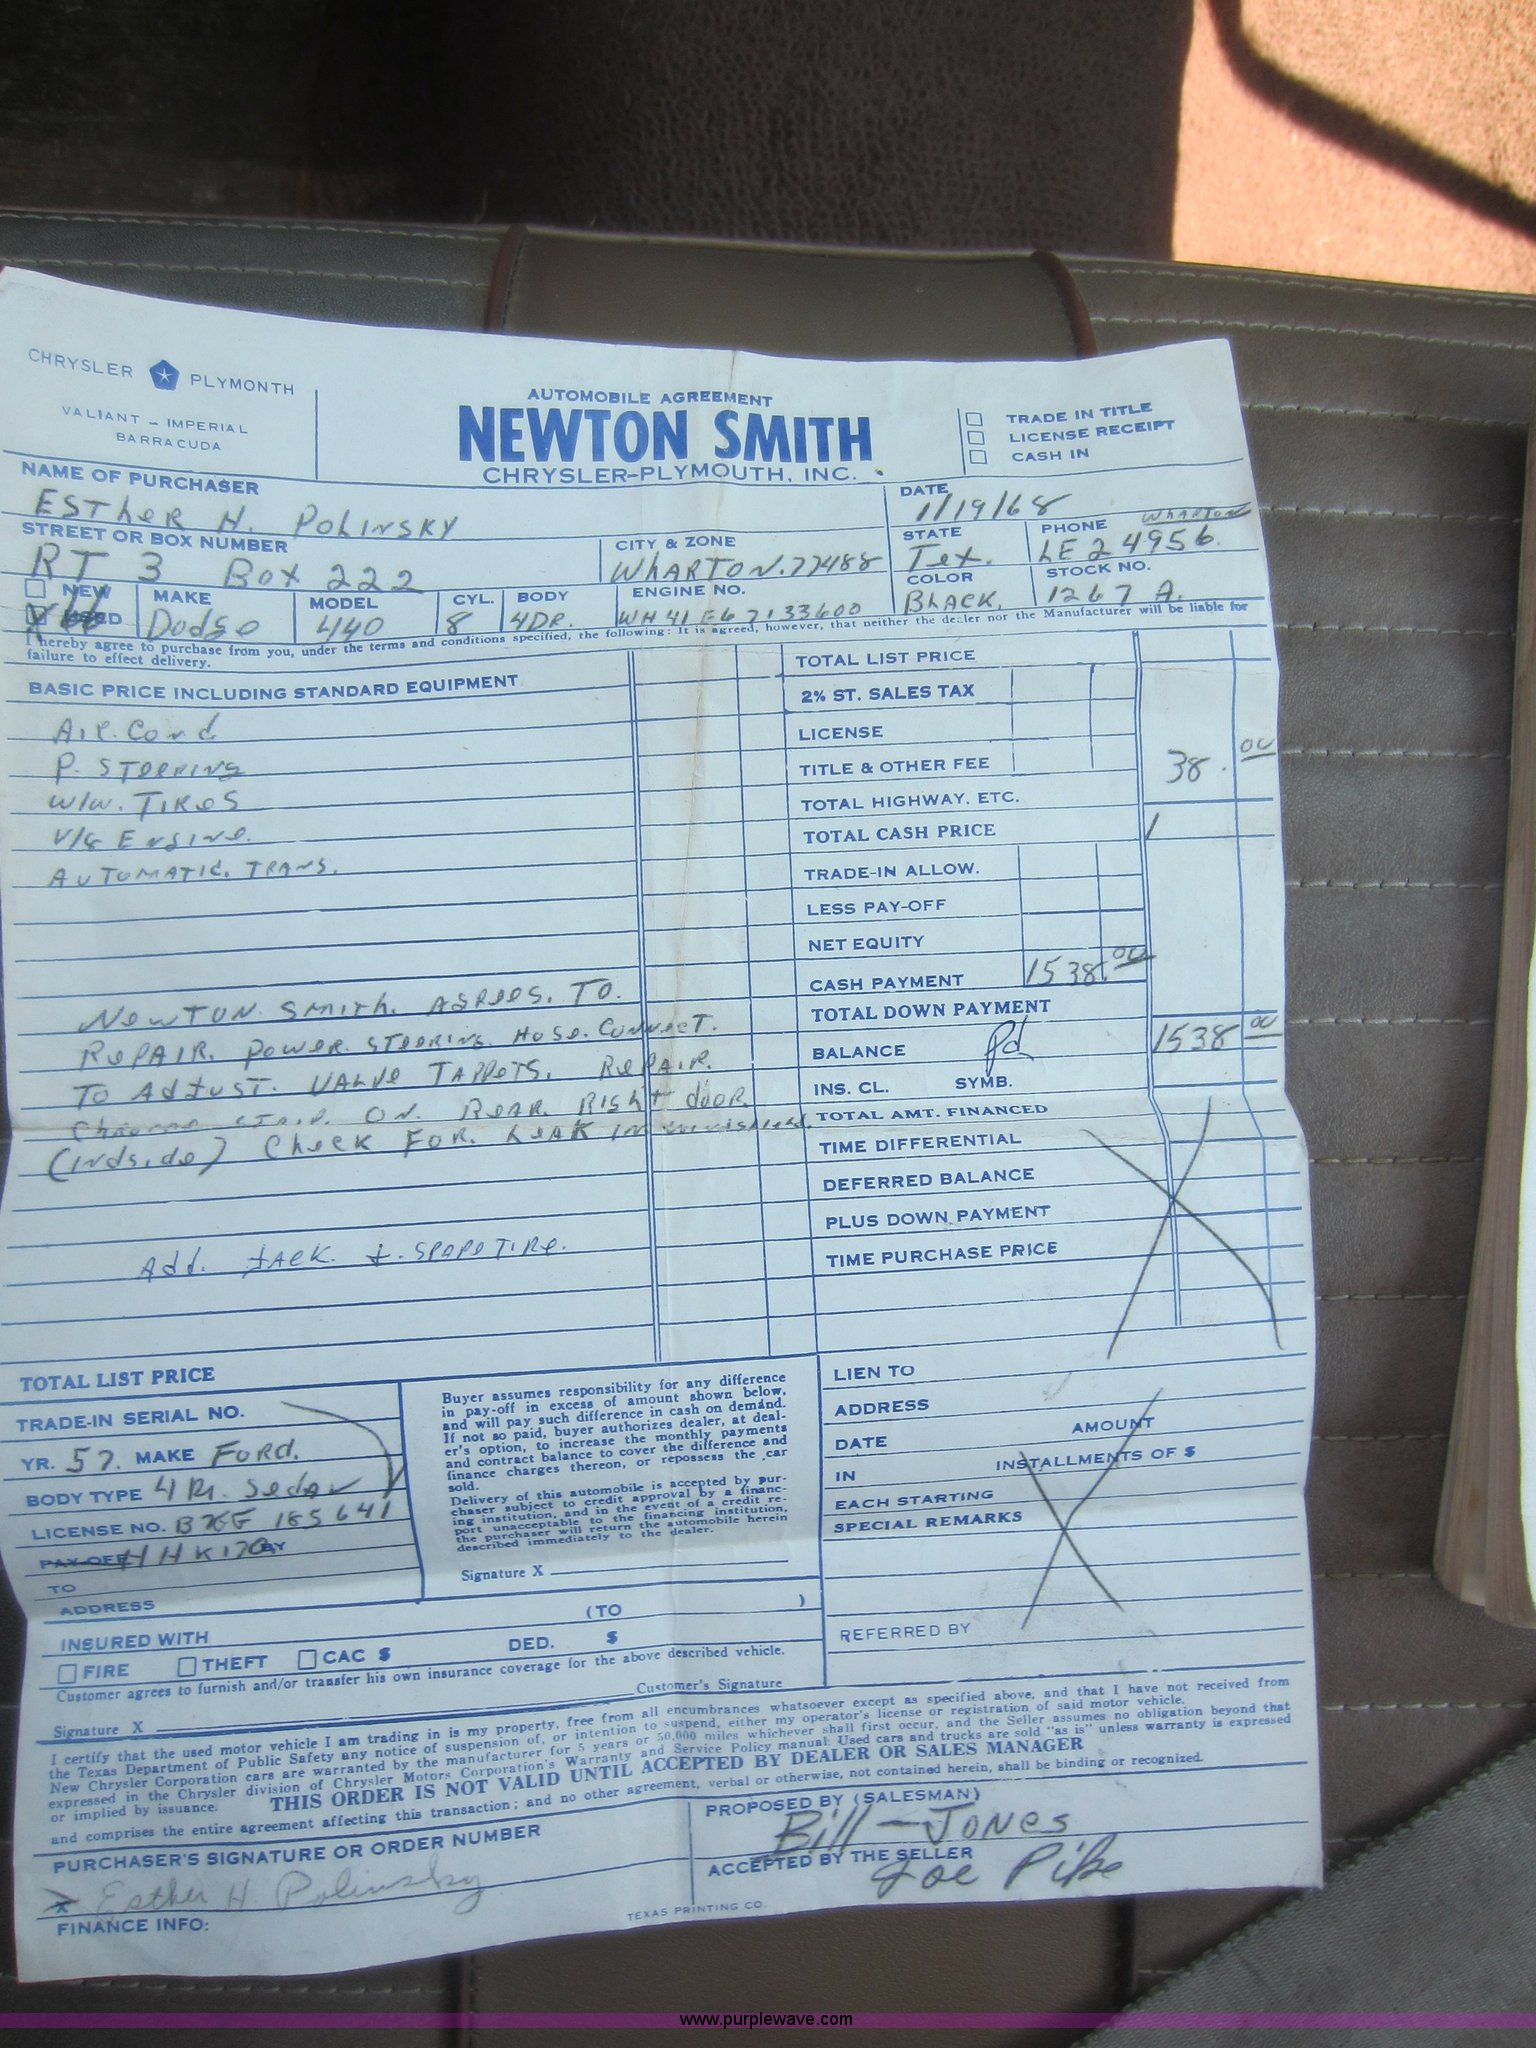 CHRYSLER PLYMONTH
VALIANT – IMPERIAL
BARRACUDA
AUTOMOBILE AGREEMENT
NEWTON SMITH
CHRYSLER-PLYMOUTH, INC.
TRADE IN TITLE
LICENSE RECEIPT
CASH IN
NAME OF PURCHASER
ESTHER H. POLINSKY
DATE
1/19/68
STREET OR BOX NUMBER
RT 3 Box 222
CITY & ZONE
WHARTON. 77488
STATE
Tex.
PHONE
WHARTON
LE 2 4956
NEW
USED
66
MAKE
Dodge
MODEL
440
CYL.
8
BODY
4DR.
ENGINE NO.
WH 41 E67133600
COLOR
BLACK.
STOCK NO.
1267 A.
I hereby agree to purchase from you, under the terms and conditions specified, the following: It is agreed, however, that neither the dealer nor the Manufacturer will be liable for
failure to effect delivery.
BASIC PRICE INCLUDING STANDARD EQUIPMENT
AIR. Cond
P. STEERING
W/W. TIRES
V/8 ENGINE.
AUTOMATIC. TRANS.
NEWTON SMITH. AGREES. TO.
REPAIR. POWER. STEERING. HOSE. CONNECT.
TO ADJUST. VALVE TAPPETS. REPAIR.
CHROME STRIP. ON. REAR. RIGHT dOOR
(INdside) CHECK FOR. LEAK IN windshield.
Add. JACK. & SPARE TIRE.
TOTAL LIST PRICE
2% ST. SALES TAX
LICENSE
TITLE & OTHER FEE
38.00
TOTAL HIGHWAY, ETC.
TOTAL CASH PRICE
TRADE-IN ALLOW.
LESS PAY-OFF
NET EQUITY
CASH PAYMENT
1538.00
TOTAL DOWN PAYMENT
BALANCE
Pd
1538 00
INS. CL. SYMB.
TOTAL AMT. FINANCED
TIME DIFFERENTIAL
DEFERRED BALANCE
PLUS DOWN PAYMENT
TIME PURCHASE PRICE
TOTAL LIST PRICE
TRADE-IN SERIAL NO.
YR. 57. MAKE FORD.
BODY TYPE 4 DR. Sedan
LICENSE NO. 185641
PAY-OFF HHK170 BY
TO
ADDRESS
Buyer assumes responsibility for any difference
in pay-off in excess of amount shown below,
and will pay such difference in cash on demand.
If not so paid, buyer authorizes dealer, at deal-
er's option, to increase the monthly payments
and contract balance to cover the difference and
finance charges thereon, or repossess the car
sold.
Delivery of this automobile is accepted by pur-
chaser subject to credit approval by a financ-
ing institution, and in the event of a credit re-
port unacceptable to the financing institution,
the purchaser will return the automobile herein
described immediately to the dealer.
Signature X
LIEN TO
ADDRESS
DATE AMOUNT
IN INSTALLMENTS OF $
EACH STARTING
SPECIAL REMARKS
REFERRED BY
INSURED WITH (TO )
FIRE THEFT CAC $ DED. $
Customer agrees to furnish and/or transfer his own insurance coverage for the above described vehicle.
Signature X Customer's Signature
I certify that the used motor vehicle I am trading in is my property, free from all encumbrances whatsoever except as specified above, and that I have not received from
the Texas Department of Public Safety any notice of suspension of, or intention to suspend, either my operator's license or registration of said motor vehicle.
New Chrysler Corporation cars are warranted by the manufacturer for 5 years or 50,000 miles whichever shall first occur, and the Seller assumes no obligation beyond that
expressed in the Chrysler division of Chrysler Motors Corporation's Warranty and Service Policy manual. Used cars and trucks are sold "as is" unless warranty is expressed
or implied by issuance. THIS ORDER IS NOT VALID UNTIL ACCEPTED BY DEALER OR SALES MANAGER
and comprises the entire agreement affecting this transaction; and no other agreement, verbal or otherwise, not contained herein, shall be binding or recognized.
PURCHASER'S SIGNATURE OR ORDER NUMBER
X Esther H. Polinsky
FINANCE INFO:
PROPOSED BY (SALESMAN)
Bill – Jones
ACCEPTED BY THE SELLER
Joe Pike
TEXAS PRINTING CO.
www.purplewave.com